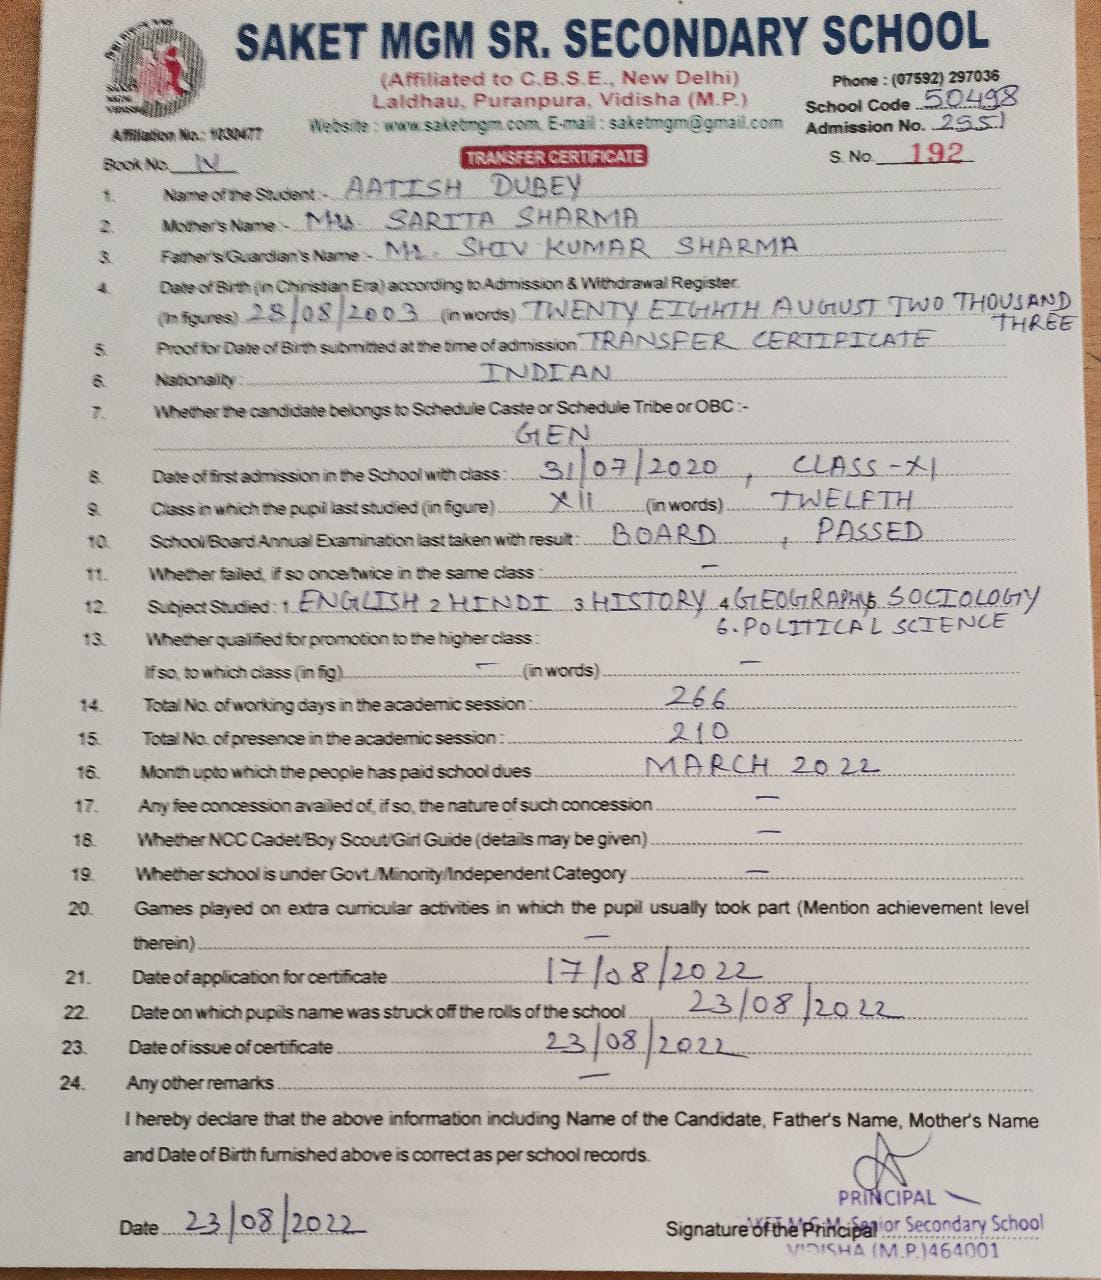 SAKET MGM SR. SECONDARY SCHOOL
(Affiliated to C.B.S.E., New Delhi)
Phone : (07592) 297036
Laldhau, Puranpura, Vidisha (M.P.)
School Code 50498
Website : www.saketmgm.com, E-mail : saketmgm@gmail.com
Admission No. 2551
Affiliation No.: 1030477
Book No. IV
TRANSFER CERTIFICATE
S. No. 192
1. Name of the Student :- AATISH DUBEY
2. Mother's Name :- Mrs. SARITA SHARMA
3. Father's/Guardian's Name :- Mr. SHIV KUMAR SHARMA
4. Date of Birth (in Chiristian Era) according to Admission & Withdrawal Register.
(In figures) 28/08/2003 (in words) TWENTY EIGHTH AUGUST TWO THOUSAND
THREE
5. Proof for Date of Birth submitted at the time of admission TRANSFER CERTIFICATE
6. Nationality : INDIAN
7. Whether the candidate belongs to Schedule Caste or Schedule Tribe or OBC :-
GEN
8. Date of first admission in the School with class : 31/07/2020, CLASS-XI
9. Class in which the pupil last studied (in figure) XII (in words) TWELFTH
10. School/Board Annual Examination last taken with result : BOARD, PASSED
11. Whether failed, if so once/twice in the same class : –
12. Subject Studied : 1. ENGLISH 2. HINDI 3. HISTORY 4. GEOGRAPHY 5. SOCIOLOGY
6. POLITICAL SCIENCE
13. Whether qualified for promotion to the higher class :
If so, to which class (in fig) – (in words) –
14. Total No. of working days in the academic session : 266
15. Total No. of presence in the academic session : 210
16. Month upto which the people has paid school dues MARCH 2022
17. Any fee concession availed of, if so, the nature of such concession –
18. Whether NCC Cadet/Boy Scout/Girl Guide (details may be given) –
19. Whether school is under Govt./Minority/Independent Category –
20. Games played on extra curricular activities in which the pupil usually took part (Mention achievement level
therein) –
21. Date of application for certificate 17/08/2022
22. Date on which pupils name was struck off the rolls of the school 23/08/2022
23. Date of issue of certificate 23/08/2022
24. Any other remarks –
I hereby declare that the above information including Name of the Candidate, Father's Name, Mother's Name
and Date of Birth furnished above is correct as per school records.
PRINCIPAL
Date 23/08/2022
Signature of the Principal
Senior Secondary School
VIDISHA (M.P.) 464001